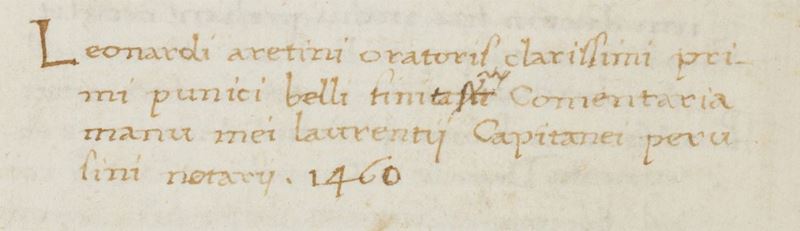 Leonardi aretini oratoris clarissimi pri-
mi punici belli finita Comentaria
manu mei laurentij Capitanei peru
sini notarij . 1460